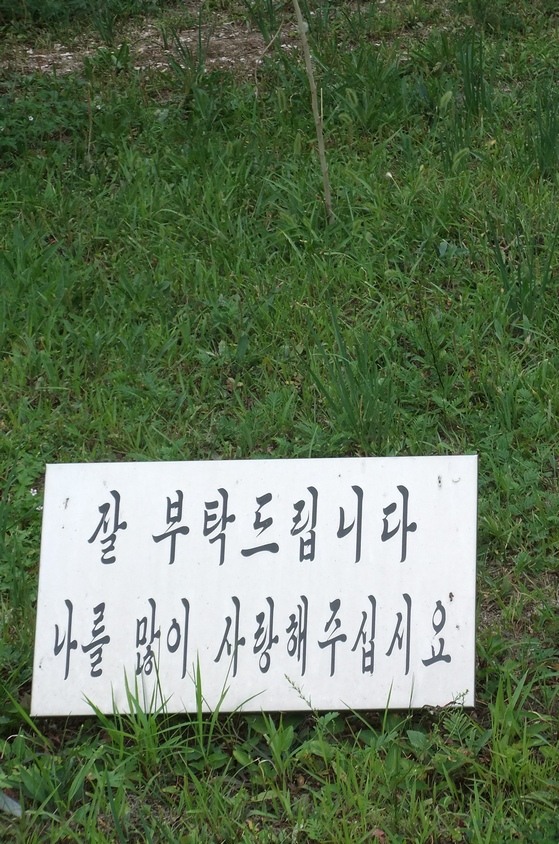 잘 부탁드립니다
나를 많이 사랑해주십시요